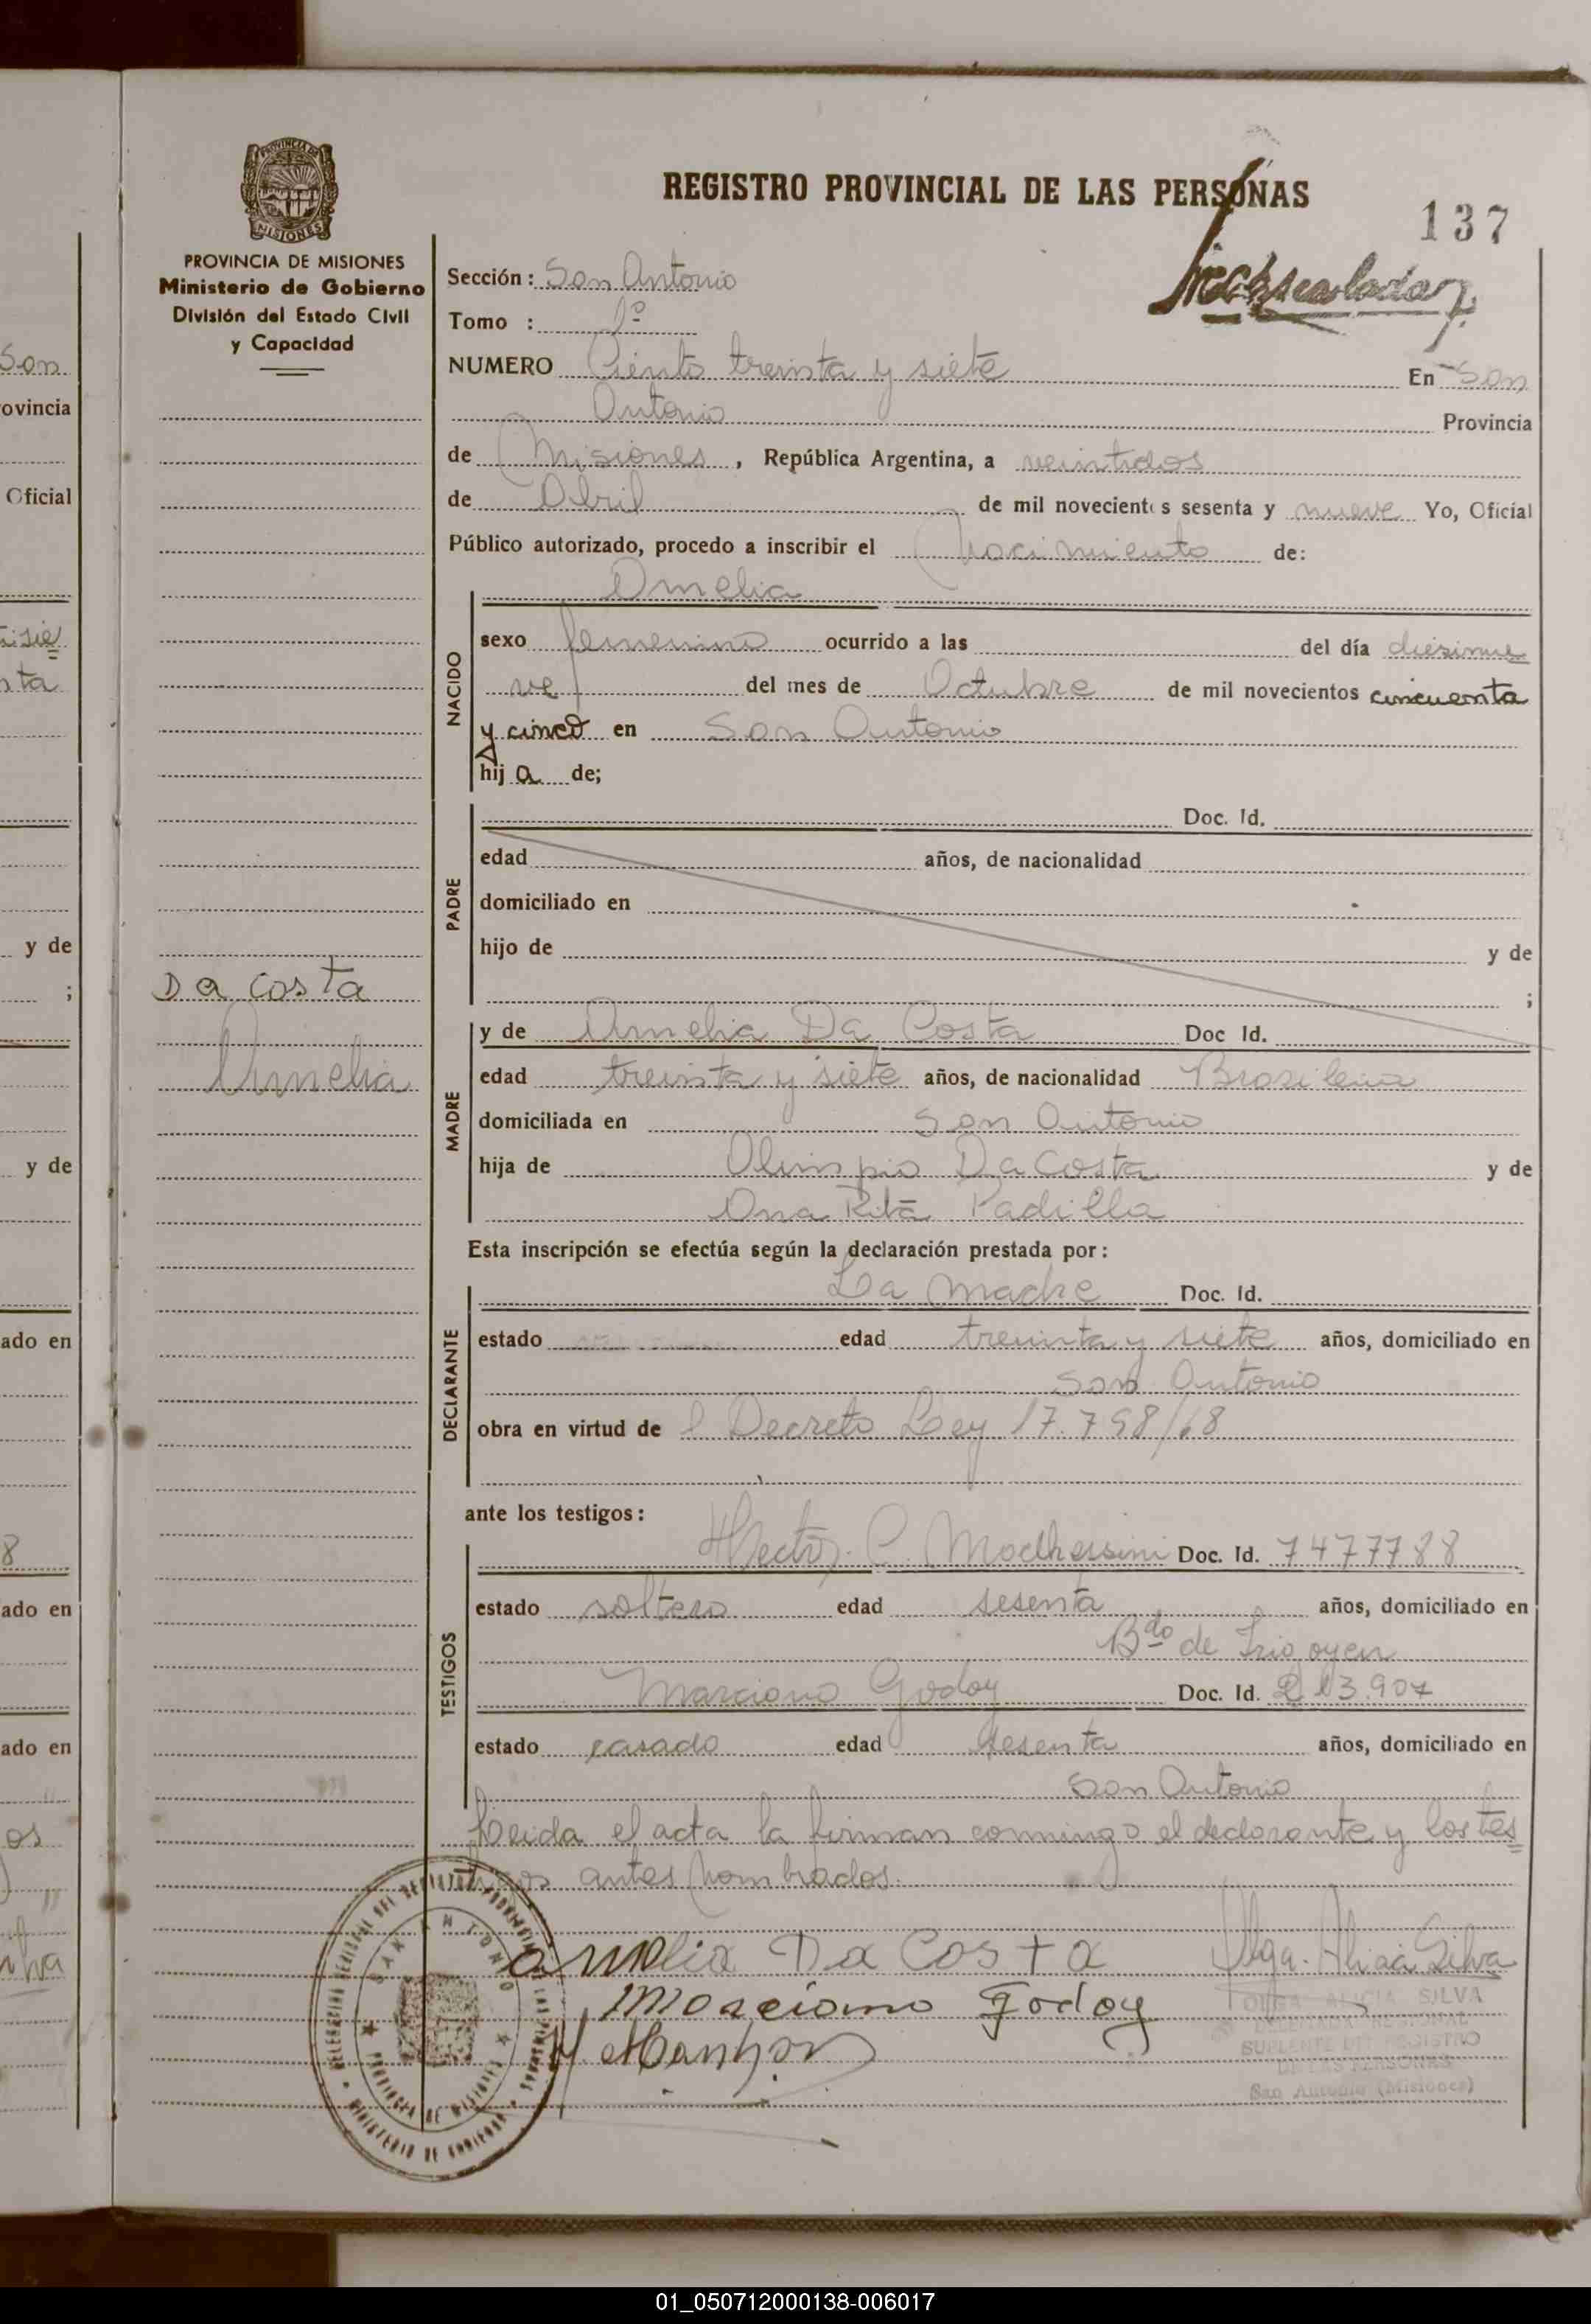 REGISTRO PROVINCIAL DE LAS PERSONAS
137
PROVINCIA DE MISIONES
Ministerio de Gobierno
División del Estado Civil
y Capacidad
Sección: San Antonio
Tomo : 1º
NUMERO Ciento treinta y siete En San
Antonio Provincia
de Misiones, República Argentina, a veintidos
de Abril de mil novecientos sesenta y nueve Yo, Oficial
Público autorizado, procedo a inscribir el Nacimiento de:
Amelia
NACIDO
sexo femenino ocurrido a las del día diesinue
ve del mes de Octubre de mil novecientos cincuenta
y cinco en San Antonio
hij a de;
PADRE
Doc. Id.
edad años, de nacionalidad
domiciliado en
hijo de y de
;
Da Costa
Amelia
MADRE
y de Amelia Da Costa Doc Id.
edad treinta y siete años, de nacionalidad Brasileña
domiciliada en San Antonio
hija de Olimpio Da Costa y de
Ana Rita Padilla
Esta inscripción se efectúa según la declaración prestada por:
DECLARANTE
La Madre Doc. Id.
estado edad treinta y siete años, domiciliado en
San Antonio
obra en virtud de l Decreto Ley 17.798/68
ante los testigos:
TESTIGOS
Hector C. Doc. Id. 7477788
estado soltero edad sesenta años, domiciliado en
Bdo de Irigoyen
Marciano Godoy Doc. Id. 13.907
estado casado edad sesenta años, domiciliado en
San Antonio
Leida el acta la firman conmingo el declarante y los tes
tigos antes nombrados.
amelia Da Costa Olga Alicia Silva
Marciano Godoy
OLGA ALICIA SILVA
DELEGADA REGIONAL
SUPLENTE DEL REGISTRO
DE LAS PERSONAS
San Antonio (Misiones)
01_050712000138-006017